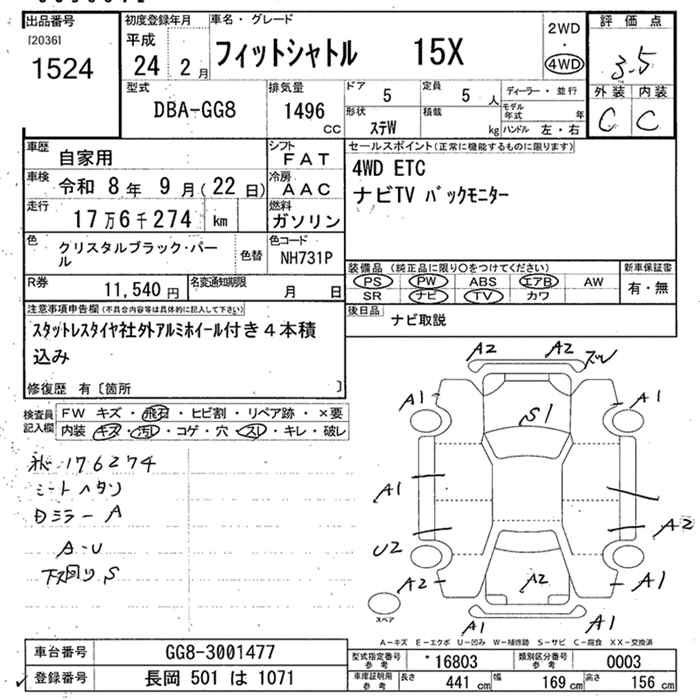 出品番号 初度登録年月 車名・グレード 評価点
[2036]
1524
平成
24 2月
フィットシャトル 15X
2WD
・
4WD
3.5
外装 内装
C C
型式 DBA-GG8
排気量 1496 CC
ドア 5
定員 5 人
ディーラー・並行
形状 ステW
積載 kg
モデル年式 年
ハンドル 左・右
車歴 自家用
シフト FAT
セールスポイント(正常に機能するものに限ります)
4WD ETC
ナビTV バックモニター
車検 令和 8年 9月(22日)
冷房 AAC
走行 17万6千274 km
燃料 ガソリン
色 クリスタルブラック・パール
色替
色コード NH731P
装備品 (純正品に限り○をつけてください)
新車保証書
PS PW ABS エアB AW
SR ナビ TV カワ
有・無
R券 11,540円
名変通知期限 月 日
後日品 ナビ取説
注意事項申告欄(不具合内容等は具体的に記入して下さい)
スタットレスタイヤ社外アルミホイール付き4本積
込み
修復歴 有〔箇所 〕
検査員記入欄
FW キズ・飛石・ヒビ割・リペア跡・×要
内装 キズ・汚レ・コゲ・穴・スレ・キレ・破レ
176274
シートヘタリ
Dミラー A
A-U
下回り S
A2 A2 ズレ
A1 A1
S1
A1
A2
U2
A2 A2 A1
A1 A1
スペア
A-キズ E-エクボ U-凹み W-補修跡 S-サビ C-腐食 XX-交換済
車台番号 GG8-3001477
登録番号 長岡 501 は 1071
型式指定番号 参考 *16803
類別区分番号 参考 0003
車庫証明用 参考 長さ 441 cm 幅 169 cm 高さ 156 cm